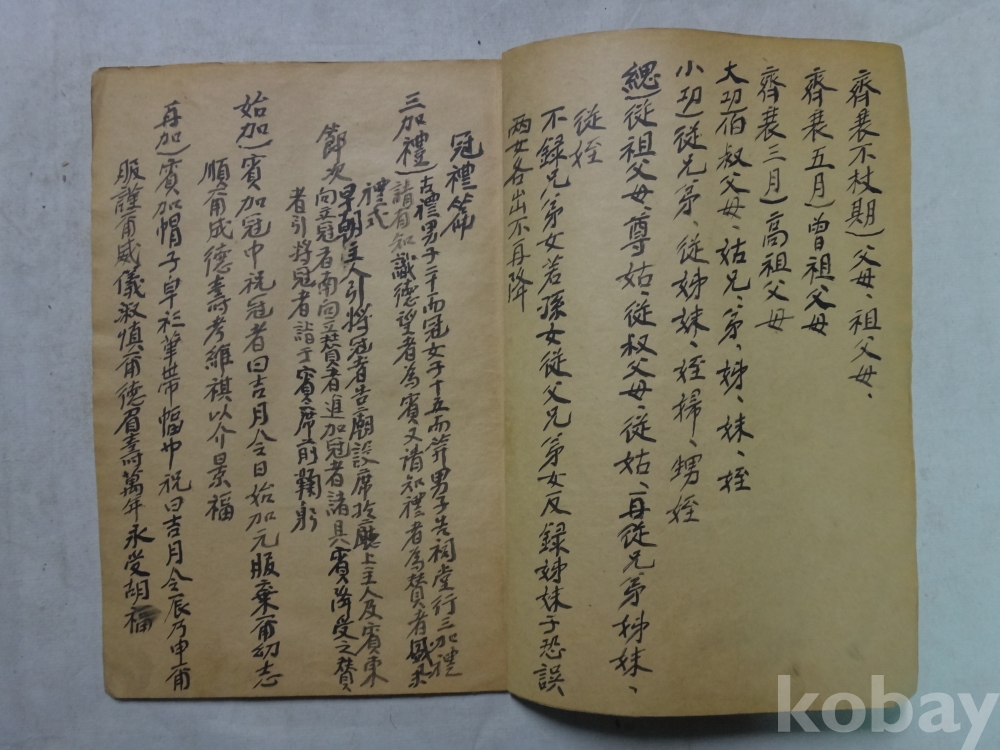 齊衰不杖期) 父母、祖父母、
齊衰五月) 曾祖父母
齊衰三月) 高祖父母
大功) 伯叔父母、姑兄、弟、姊、妹、姪
小功) 從兄弟、從姊妹、姪婦、甥姪
緦) 從祖父母、尊姑、從叔父母、從姑、再從兄弟姊妹、
從姪
不錄兄弟女若孫女從父兄弟女反錄姊妹子恐誤
兩女各出不再降
冠禮笄
三加禮) 古禮男子二十而冠女子十五而笄男子告祠堂行三加禮
請有知識德望者為賓又請知禮者為贊者
禮式
節次 早朝主人引將冠者告廟設席於廳上主人及賓東
向立冠者南向立贊者進加冠者諸具賓降受之贊
者引將冠者詣于賓席前鞠躬
始加) 賓加冠巾祝冠者曰吉月令日始加元服棄爾幼志
順爾成德壽考維祺以介景福
再加) 賓加帽子皁衫革帶幅巾祝曰吉月令辰乃申爾
服謹爾威儀淑慎爾德眉壽萬年永受胡福
kobay